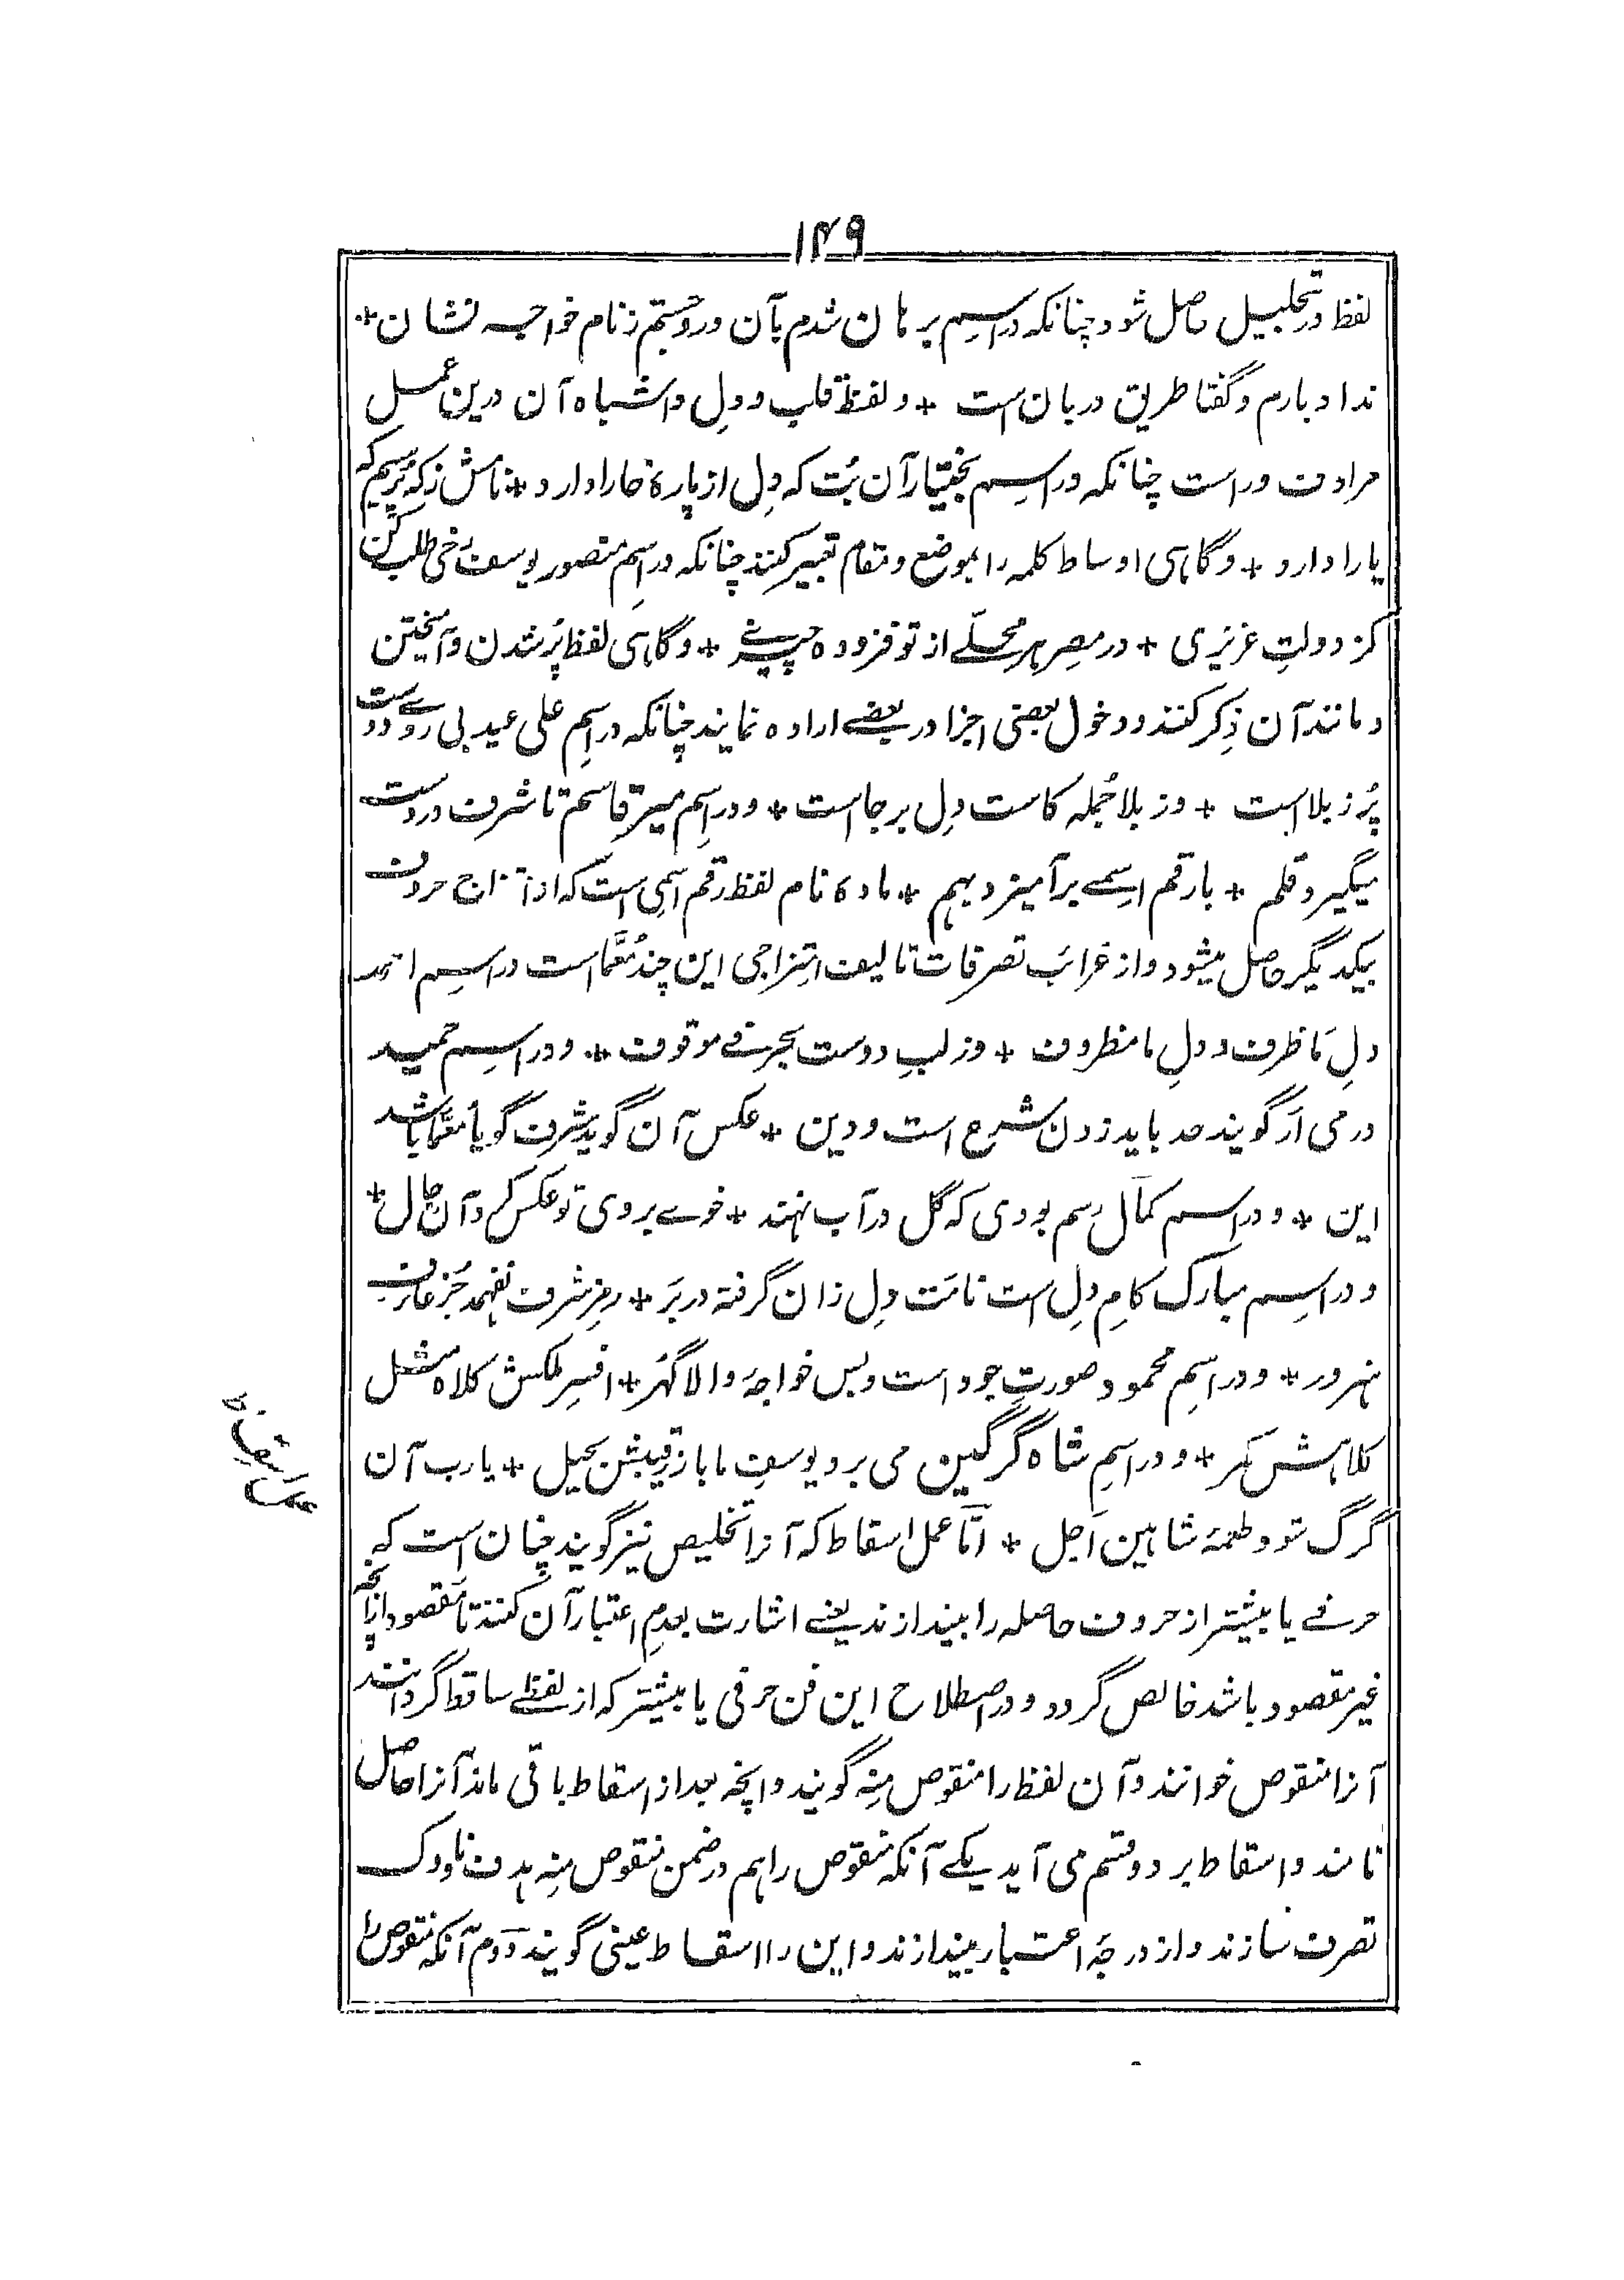 ۱۴۹
لفظ در تحلیل حاصل شود چنانکه در اسم برهان شدم بآن در و جستم ز نام خواجه نشان +
نداد بارم و گفتا طریق دربان است + و لفظ قلب و دل و اشباه آن درین عمل
مرادف در است چنانکه در اسم بختیار آن بت که دل از پارهٔ خارا دارد + نامش ز که پرسیم که
یارا دارد + و گاهی اوساط کلمه را بموضع و مقام تعبیر کنند چنانکه در اسم منصور یوسف رخی طلب کن
کز دولت عزیزی + در مصر هر محلے از تو فزوده چیزے + و گاهی لفظ پر شدن و آمیختن
و مانند آن ذکر کنند و دخول بعضی اجزا در بعضے اراده نمایند چنانکه در اسم علی عید بی روے دوست
پر ز بلا است + وز بلا جمله کاست دل برجاست + و در اسم میر قاسم تا شرف در دست
میگیرد قلم + با رقم اسمے برآمیزد بهم + ماده نام لفظ رقم اسمی است که از امتزاج حروف
بیکدیگر حاصل میشود و از غرائب تصرفات تالیف امتزاجی این چند معما است در اسم احمد
دل ما ظرف و دل ما مظروف + وز لب دوست بحرفے موقوف + و در اسم حمید
در می ار گویند حد باید زدن شرع است و دین + عکس آن گوید شرف گویا معما باشد
این + و در اسم کمال رسم بودی که گل در آب نهند + خوے بروی تو عکس کرد آن حال +
و در اسم مبارک کام دل است نامت دل زان گرفته در بر + رمز شرف نفهمد جز عارف
هنرور + و در اسم محمود صورت جود است و بس خواجهٔ والا گهر + افسر ملکش کلاه مثل
کلاهش مگر + و در اسم شاه گرگین می برد یوسف ما باز رقیبش بحیل + یارب آن
گرگ شود طعمهٔ شاهین اجل + اما عمل اسقاط که آنرا تخلیص نیز گویند چنان است که
حرفے یا بیشتر از حروف حاصله را بیندازند یعنے اشارت بعدم اعتبار آن کنند تا مقصود ازانچه
غیر مقصود باشد خالص گردد و در اصطلاح این فن حرفی یا بیشتر که از لفظے ساقط گردانند
آنرا منقوص خوانند و آن لفظ را منقوص منه گویند و انچه بعد از اسقاط باقی ماند آنرا حاصل
نامند و اسقاط بر دو قسم می آید یکے آنکه منقوص را هم در ضمن منقوص منه هدف ناوک
تصرف سازند و از درجهٔ اعتبار بیندازند و این را اسقاط عینی گویند دوم آنکه منقوص را